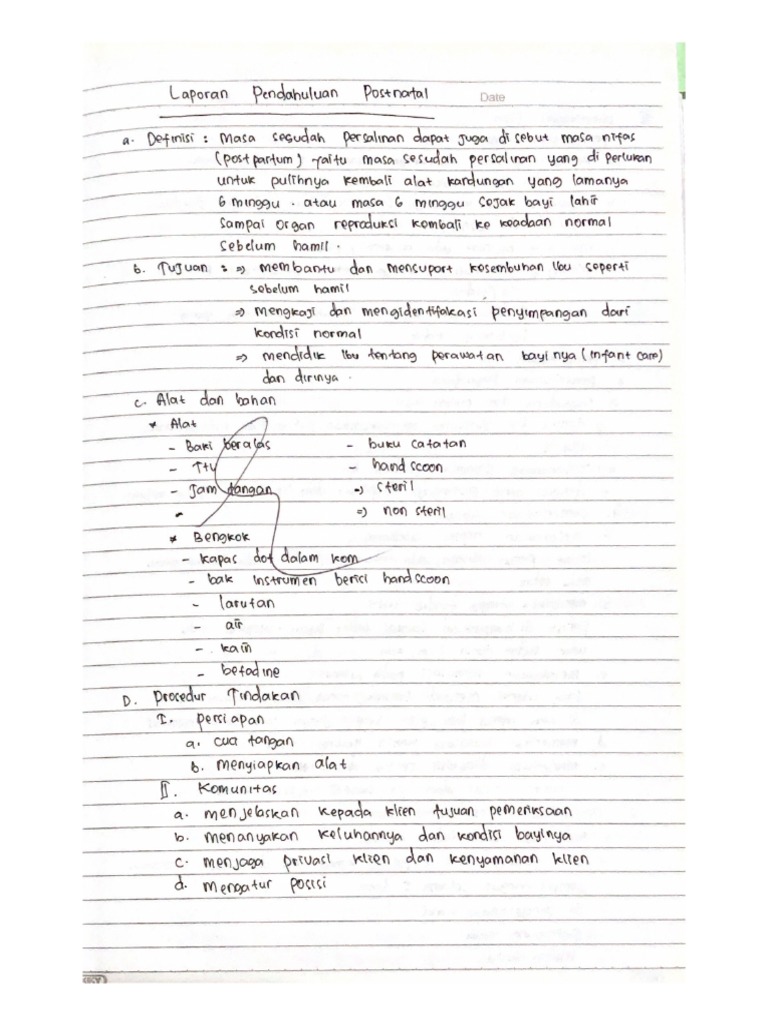 Laporan Pendahuluan Postnatal
Date
a. Definisi : Masa sesudah persalinan dapat juga di sebut masa nifas
(postpartum) yaitu masa sesudah persalinan yang di perlukan
untuk pulihnya kembali alat kandungan yang lamanya
6 minggu . atau masa 6 minggu sejak bayi lahir
sampai organ reproduksi kembali ke keadaan normal
sebelum hamil .
b. Tujuan : => membantu dan mensuport kesembuhan Ibu seperti
sebelum hamil
=> mengkaji dan mengidentifakasi penyimpangan dari
kondisi normal
=> mendidik Ibu tentang perawatan bayinya (infant care)
dan dirinya .
c. Alat dan bahan
* Alat
- Baki beralas - buku catatan
- TTV - handscoon
- Jam tangan => steril
- => non steril
* Bengkok
- kapas dot dalam kom
- bak instrumen berisi handscoon
- larutan
- air
- kain
- betadine
D. Procedur Tindakan
I. persiapan
a. cua tangan
b. menyiapkan alat
II. Komunitas
a. menjelaskan kepada klien tujuan pemeriksaan
b. menanyakan keluhannya dan kondisi bayinya
c. menjaga privasi klien dan kenyamanan klien
d. mengatur posisi